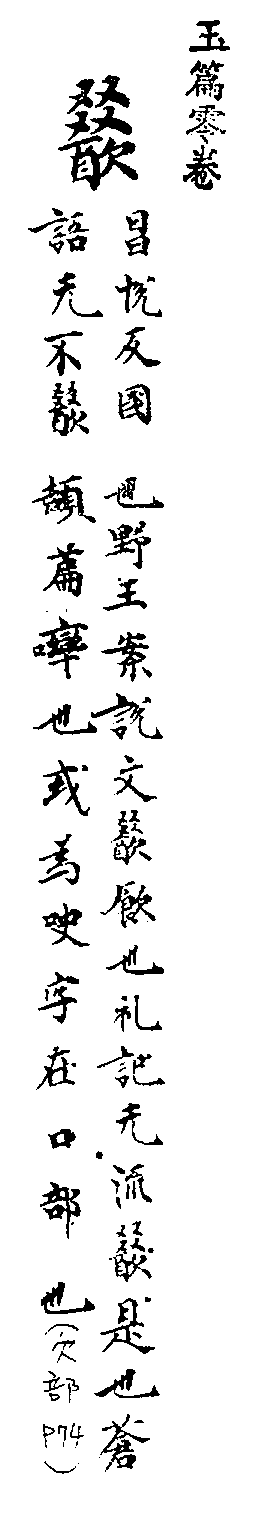 玉篇零卷
歠
昌悅反国
語无不歠
也野王案說文歠飲也礼記无流歠是也蒼
頡篇也或為吷字在口部也（欠部P74）